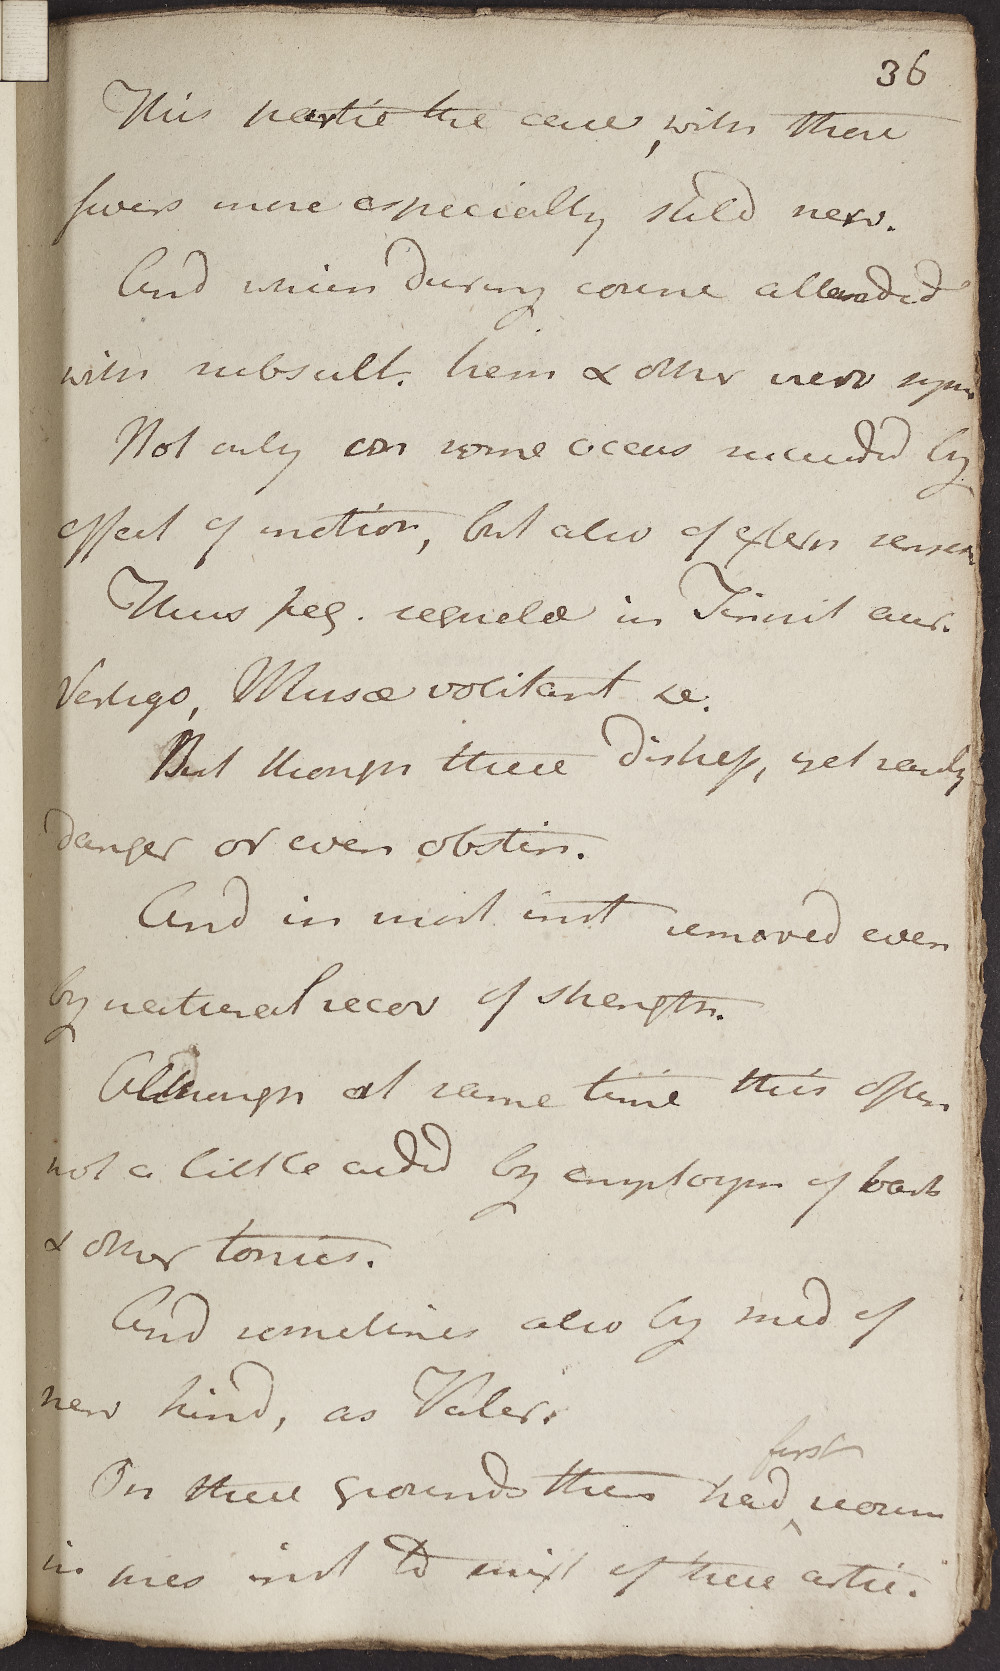 36
This partic the case, with those
fevers more especially stild nerv.
And which during course attended
with subsult. trem & other nerv sym
Not only on some occas succeeded by
effect of motion, but also of extern senses
Thus freq. sequelæ in Tinnit aur.
Vertigo, Muscæ volitant &c.
But though these distress, yet rarely
danger or even obstin.
And in most inst removed even
by natural recov of strength.
Although at same time this often
not a little aided by employm of bark
& other tonics.
And sometimes also by med of
nerv kind, as Valer.
On these grounds then had first recourse
in pres inst to mixt of these artic.